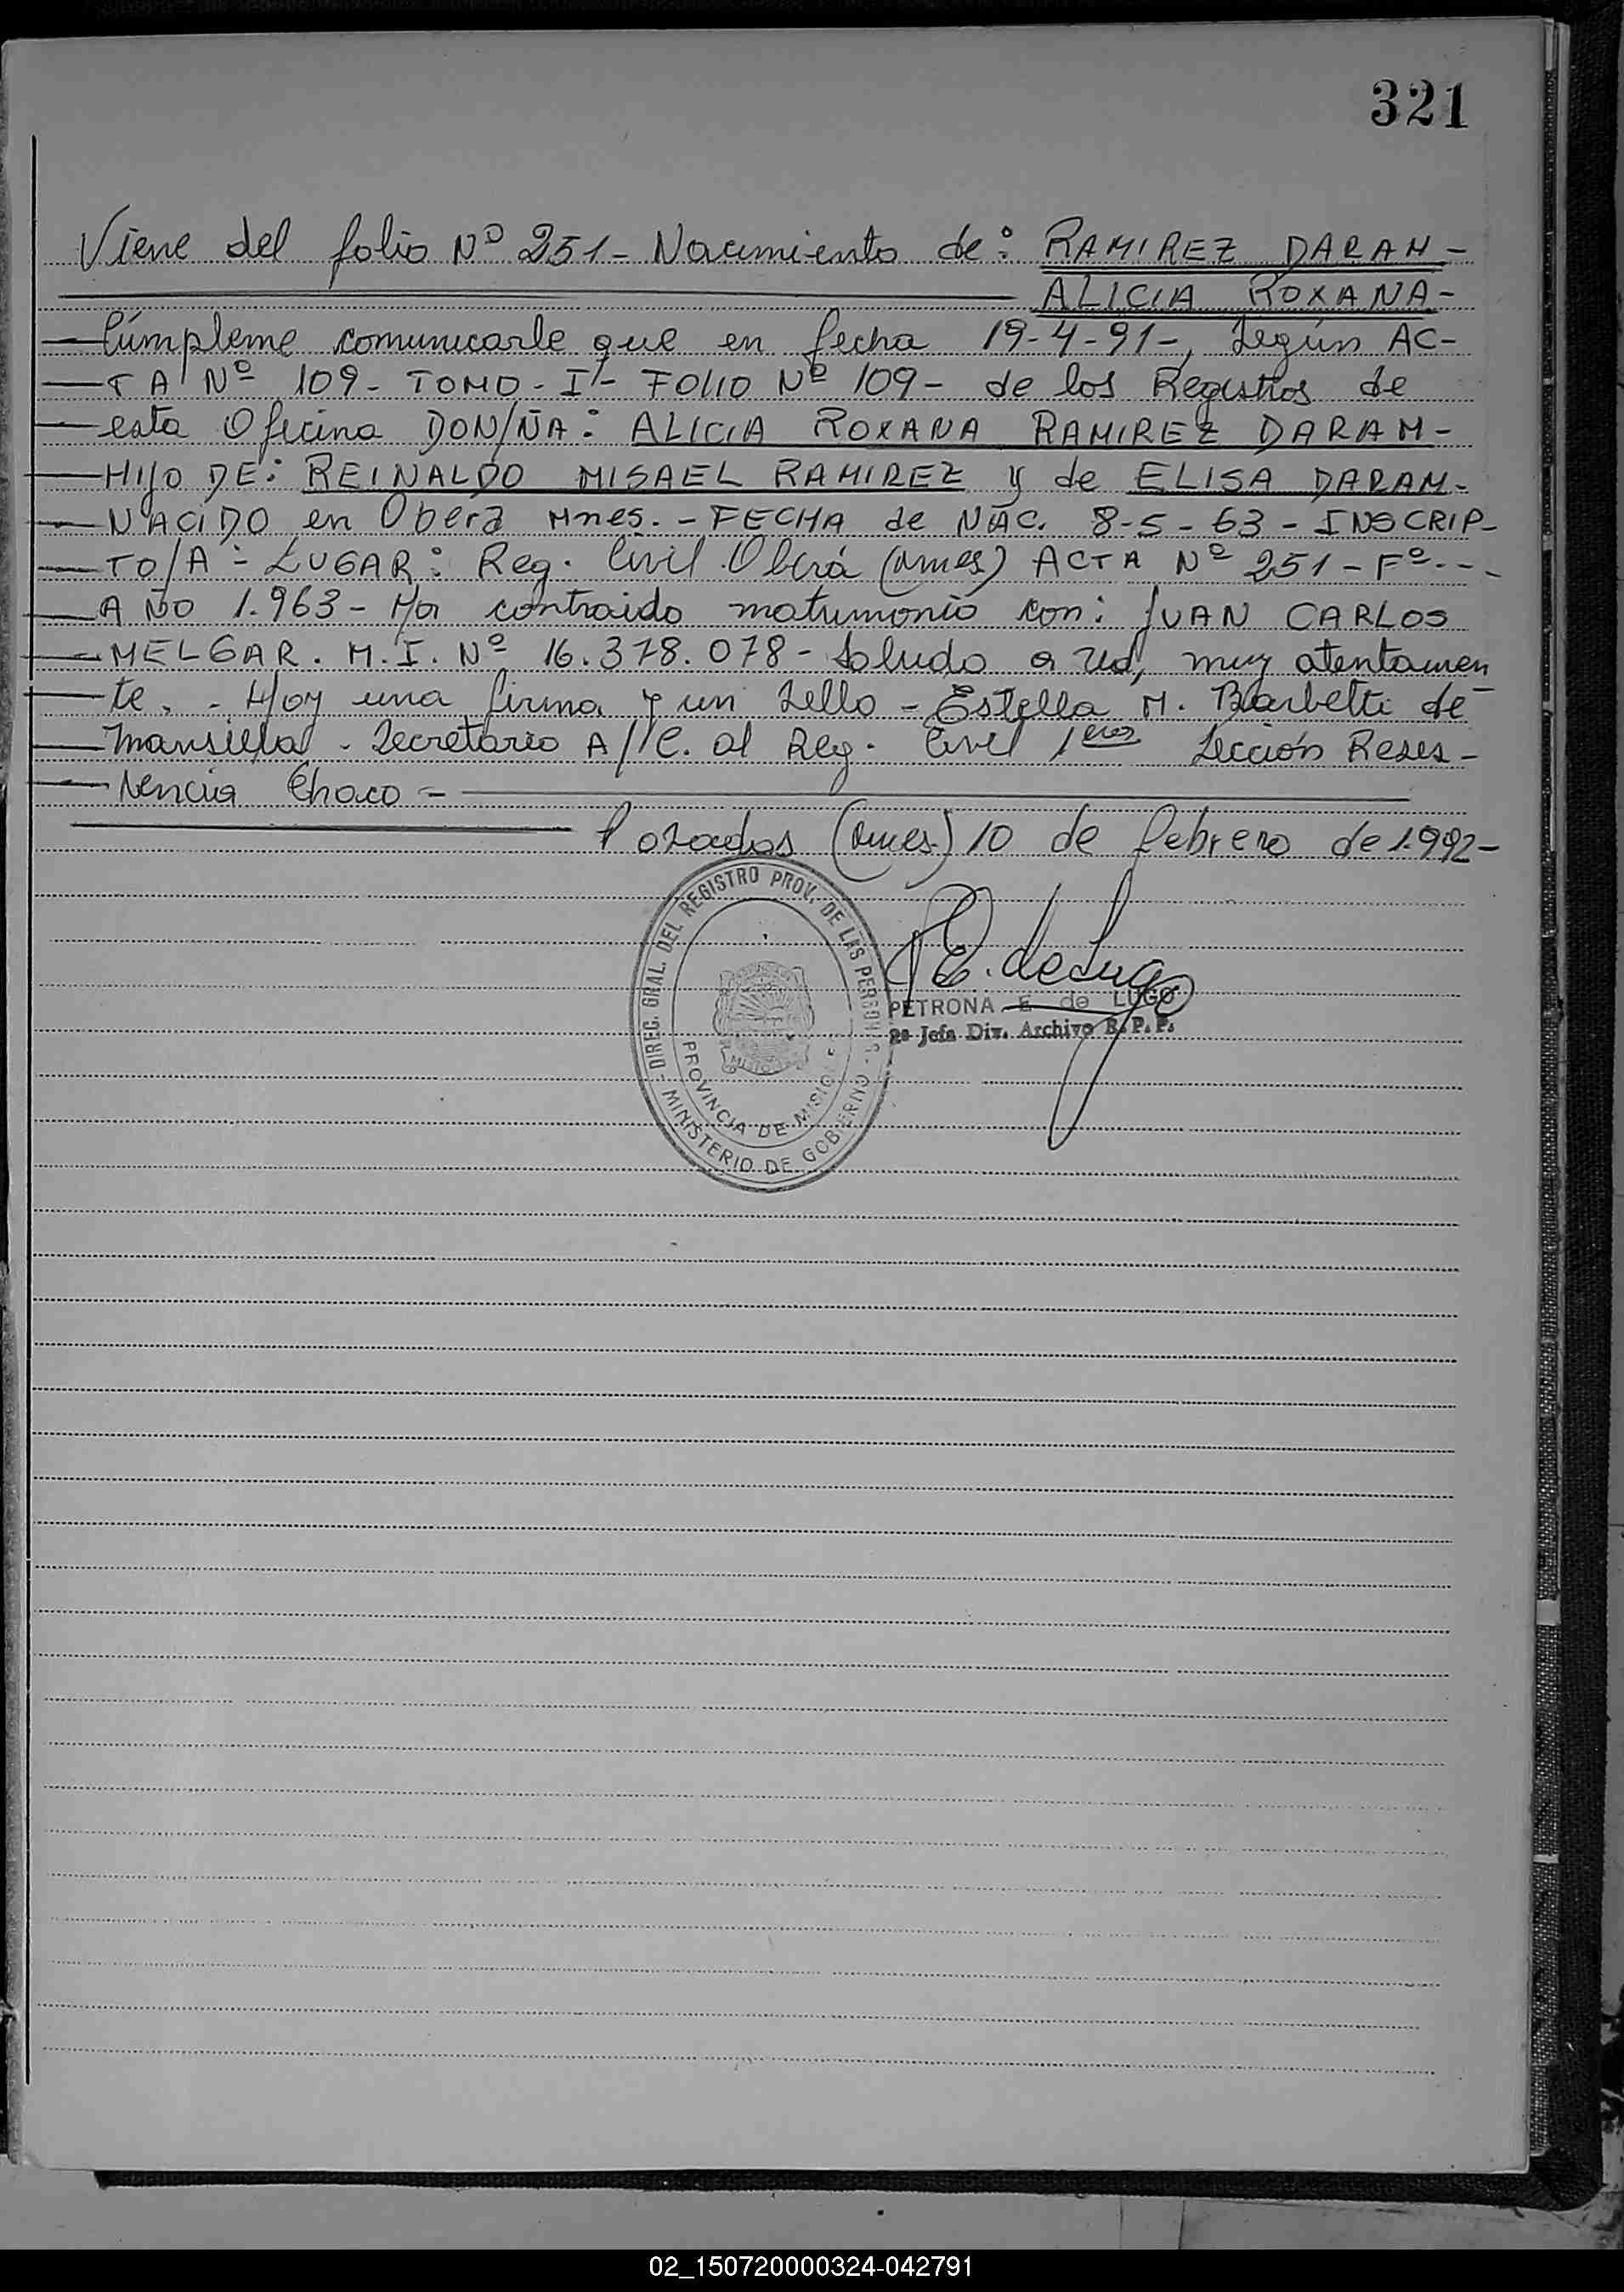 321
Viene del folio Nº 251- Nacimiento de: RAMIREZ DARAM-
ALICIA ROXANA-
Cúmpleme comunicarle que en fecha 19-4-91-, Según AC-
TA Nº 109- TOMO- I- FOLIO Nº 109- de los Registros de
esta Oficina DON/ÑA: ALICIA ROXANA RAMIREZ DARAM-
HIJO DE: REINALDO MISAEL RAMIREZ y de ELISA DARAM-
NACIDO en Oberá Mnes.- FECHA de NAC. 8-5-63- INSCRIP-
TO/A- LUGAR: Reg. Civil Oberá (Mnes) ACTA Nº 251- Fº---
AÑO 1.963- Ha contraido matrimonio con: JUAN CARLOS
MELGAR. M.I. Nº 16.378.078- Saludo a Ud, muy atentamen
te.- Hay una firma y un sello- Estella M. Barbetti de
Mansilla- Secretario A/C. al Reg. Civil 1era Sección Resis-
tencia Chaco-
Posadas (Mnes.) 10 de febrero de 1.992-
DIREC. GRAL. DEL REGISTRO PROV. DE LAS PERSONAS
PROVINCIA DE MISIONES
MINISTERIO DE GOBIERNO
P E. de Lugo
PETRONA E de LUGO
2º Jefa Div. Archivo R.P.P.
02_150720000324-042791